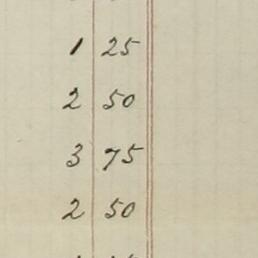 1 25
2 50
3 75
2 50